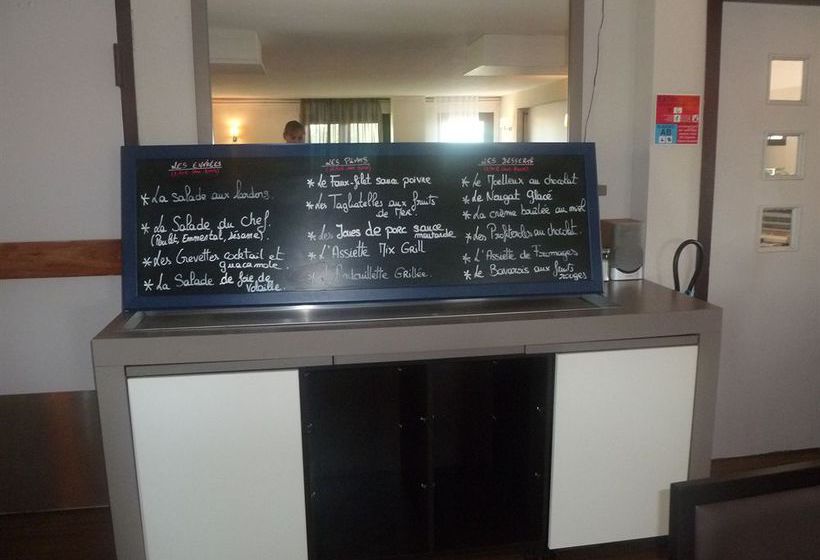 LES ENTRÉES
* La salade aux lardons.
* La Salade du Chef.
(Poulet, Emmental, Sésame).
* Les Crevettes cocktail et
guacamole.
* La Salade de foie de
Volaille.
LES PLATS
* Le Faux-filet sauce poivre
* Les Tagliatelles aux fruits
de Mer.
* Les Joues de porc sauce
moutarde
* L'Assiette Mix Grill
* Grillée.
LES DESSERTS
* Le Moelleux au chocolat
* Le Nougat Glacé
* La crème brûlée au miel
* Les Profiteroles au chocolat.
* L'Assiette de Fromages
* Le Bavarois aux fruits
rouges
AB